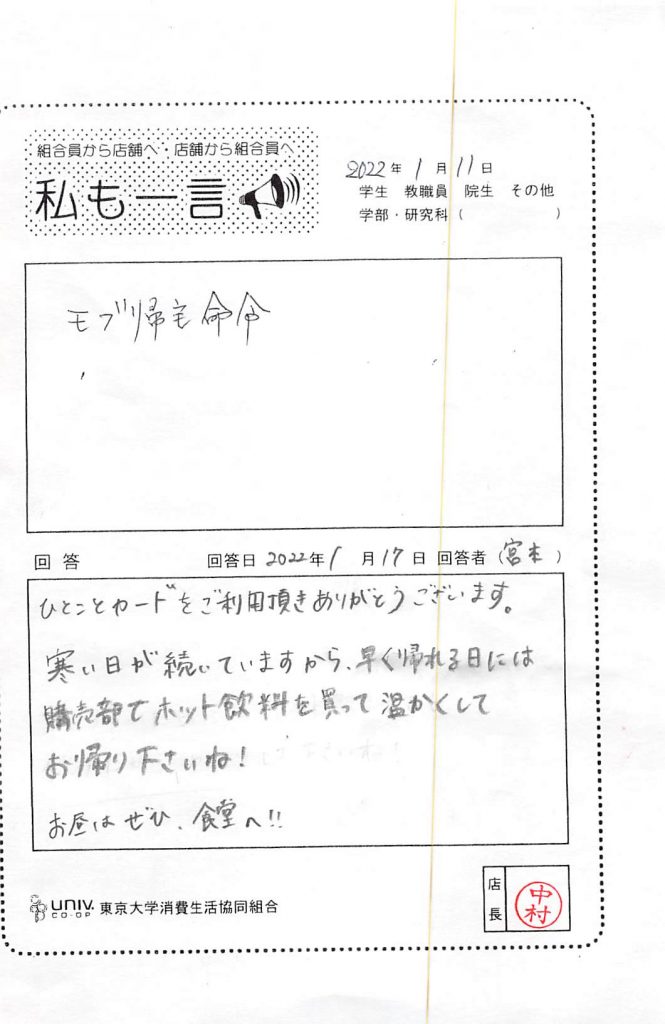 組合員から店舗へ・店舗から組合員へ
私も一言
2022年 1月 11日
学生 教職員 院生 その他
学部・研究科( )
モブリ帰宅命令
回答 回答日 2022年 1月 17日 回答者(宮本)
ひとことカードをご利用頂きありがとうございます。
寒い日が続いていますから、早く帰れる日には
購売部でホット飲料を買って温かくして
お帰り下さいね!
お昼はぜひ、食堂へ!!
UNIV. CO-OP 東京大学消費生活協同組合
店長 中村